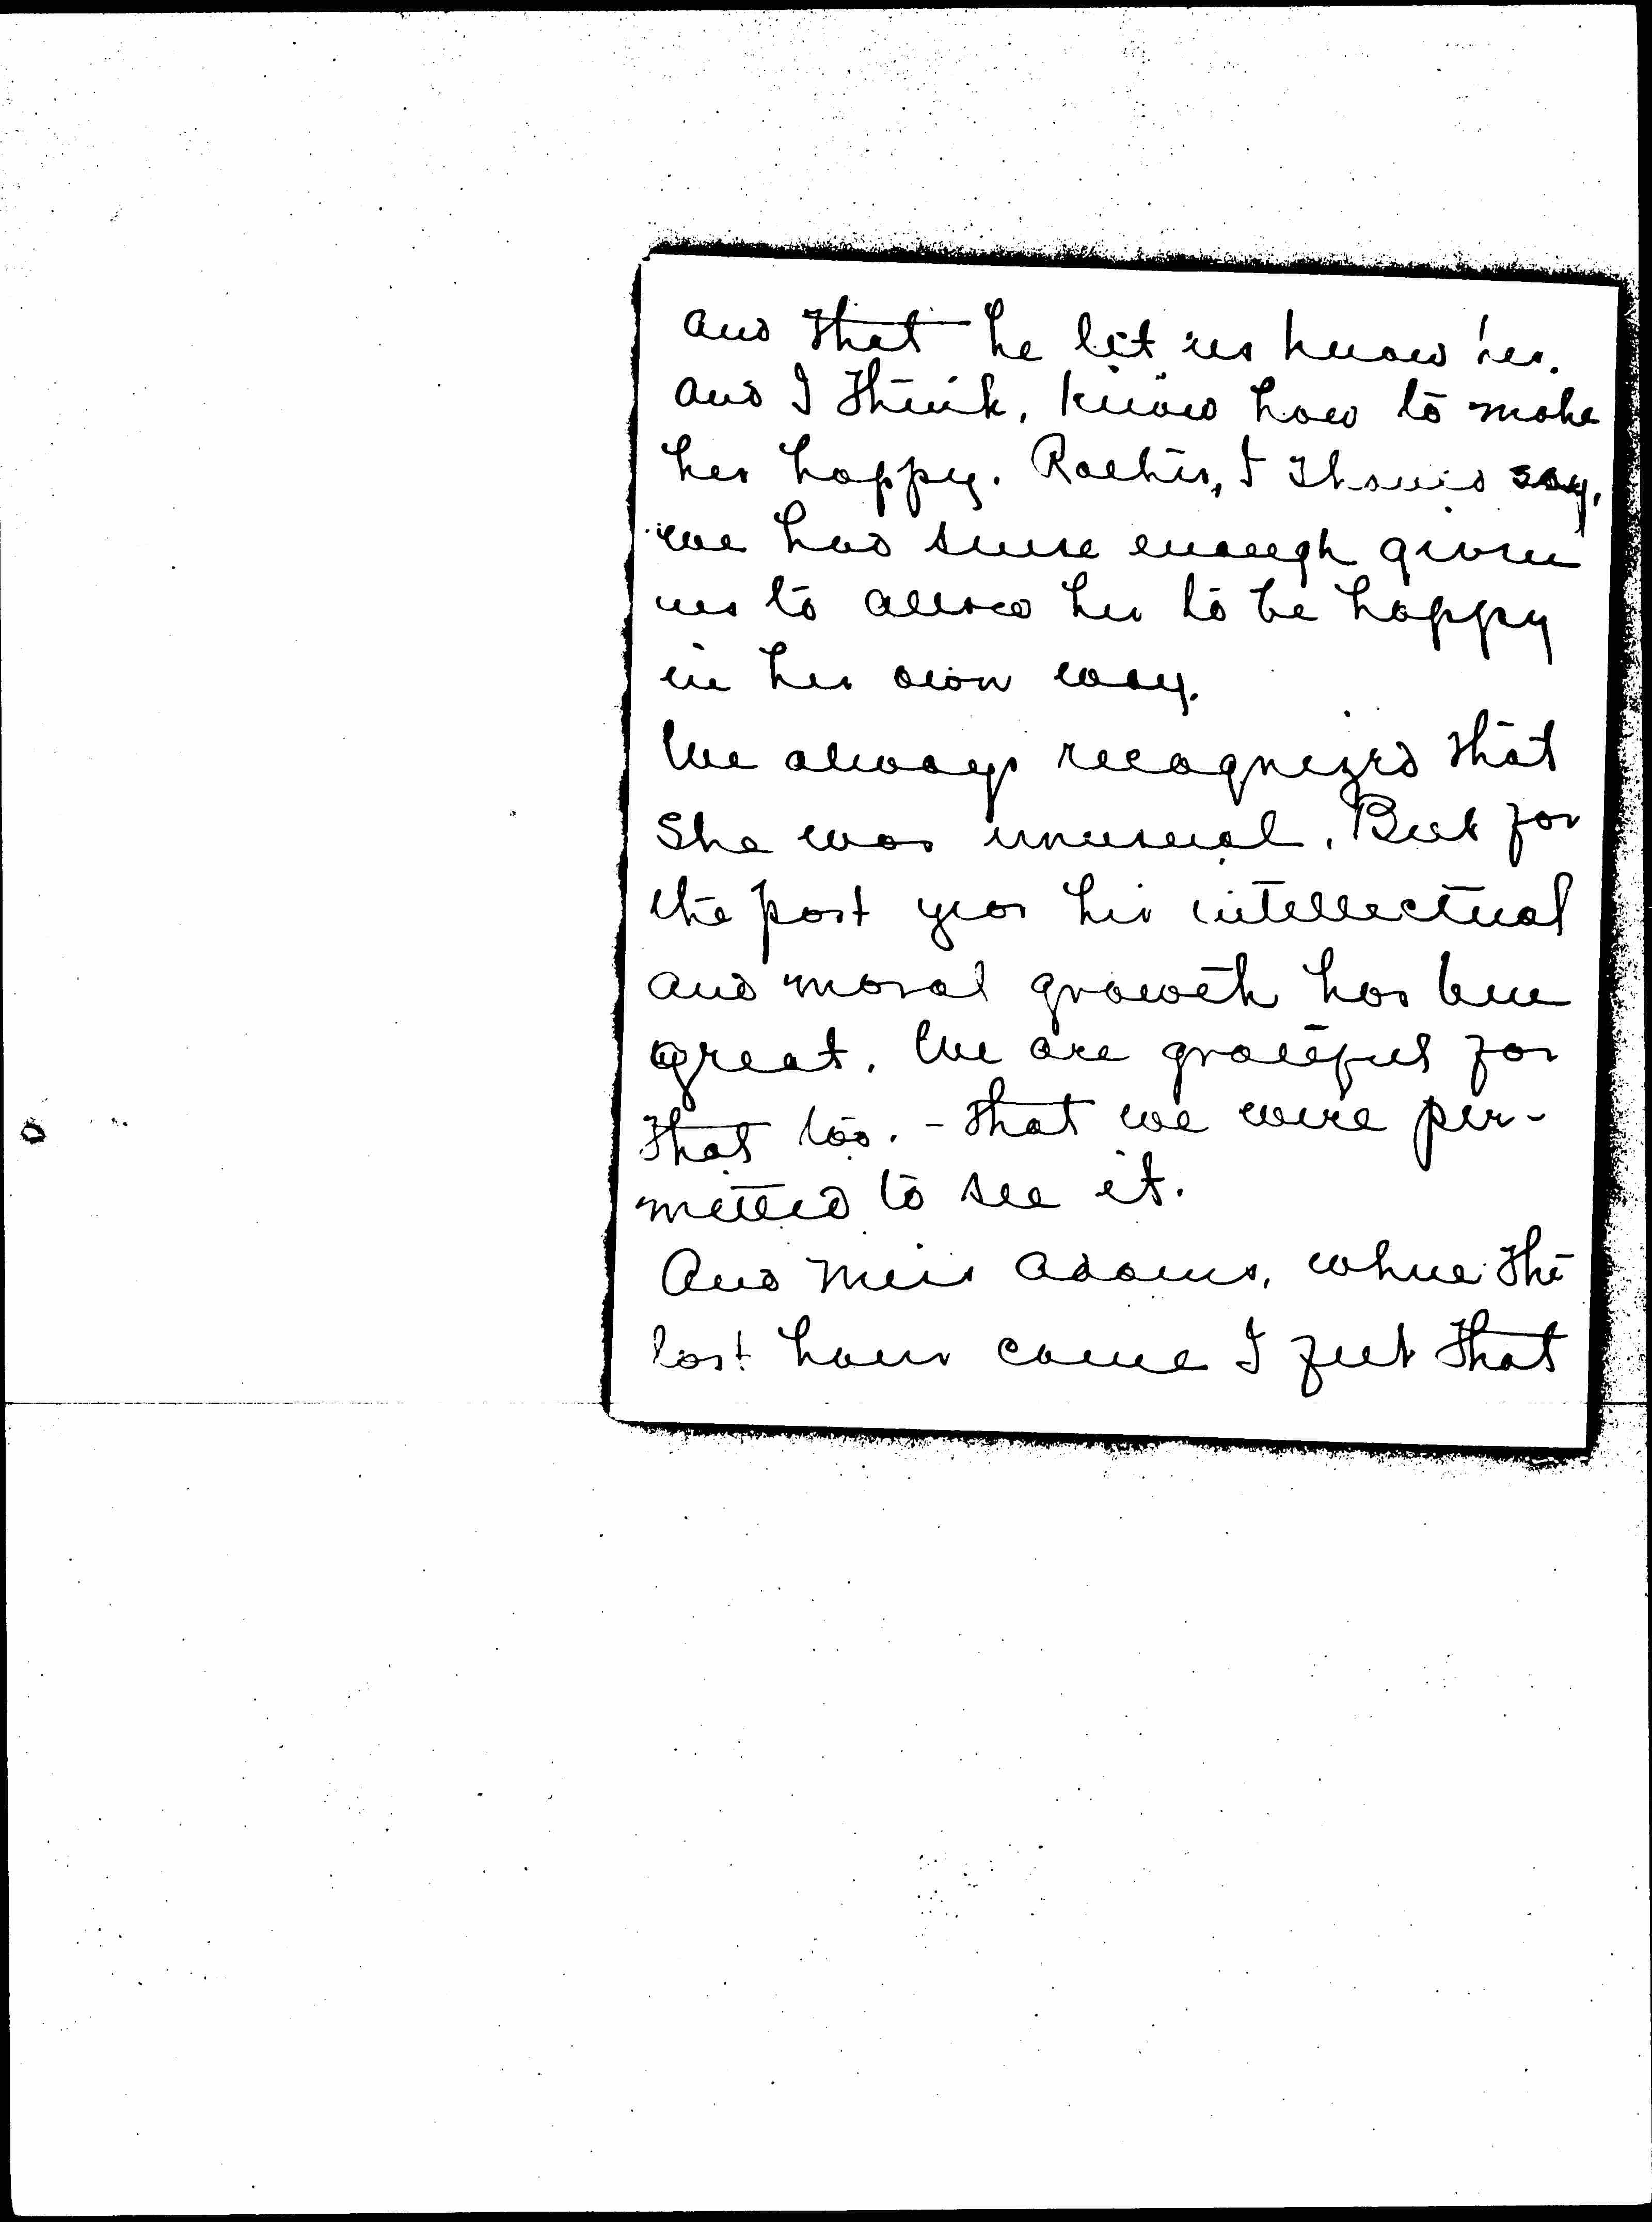 and that he let us know her.
And I think, know how to make
her happy. Rather, I should say,
we had sense enough given
us to allow her to be happy
in her own way.
We always recognized that
she was unusual. But for
the past year her intellectual
and moral growth has been
great. We are grateful for
that too. - that we were per-
mitted to see it.
And Miss Adams, when the
last hour came I felt that